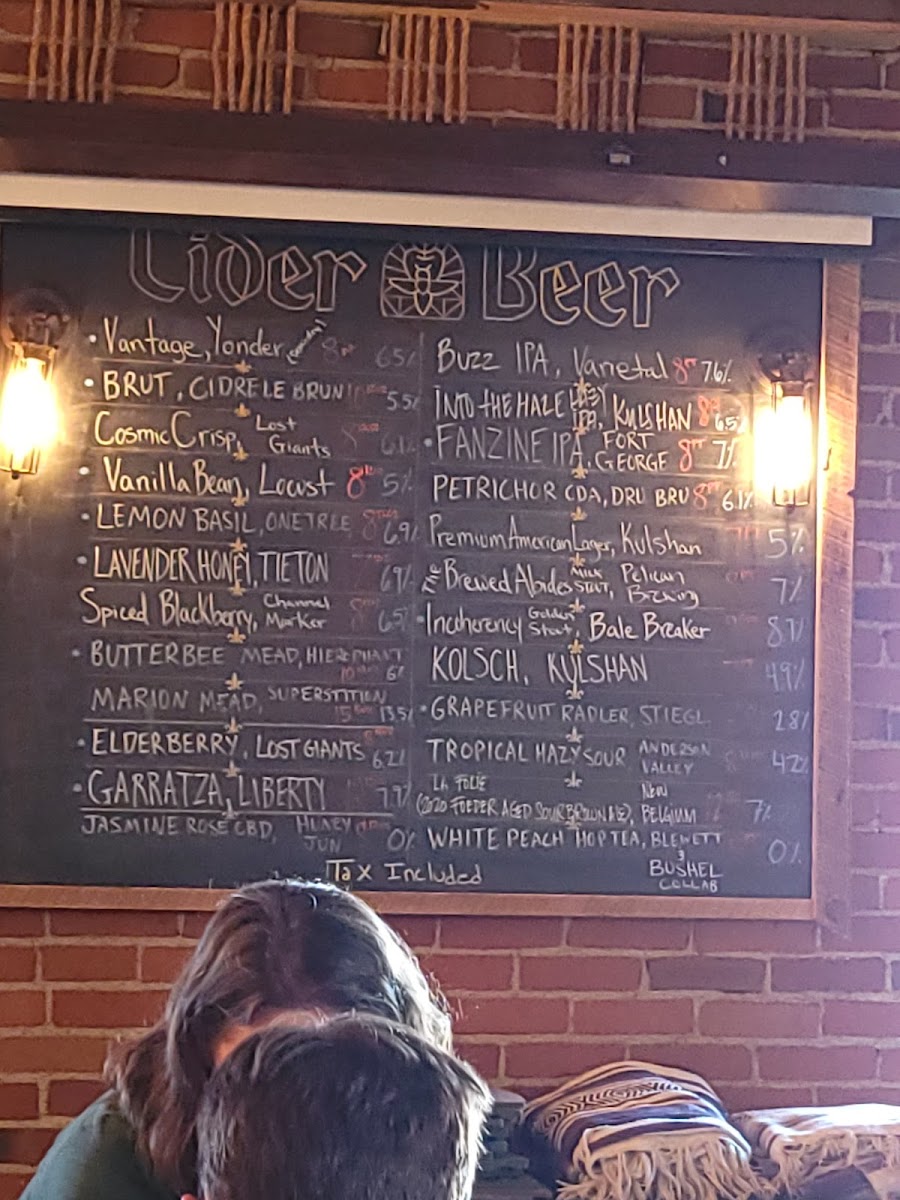 Cider Beer
• Vantage, Yonder 8 6.5%
• BRUT, CIDRE LE BRUN 5.5%
Cosmic Crisp, Lost Giants 6.1%
• Vanilla Bean, Locust 8 5%
• LEMON BASIL, ONE TREE 6.9%
• LAVENDER HONEY, TIETON 6.9%
Spiced Blackberry, Channel Marker 6.5%
• BUTTERBEE MEAD, HIEROPHANT 6%
MARION MEAD, SUPERSTITION 15 13.5%
• ELDERBERRY, LOST GIANTS 6.2%
• GARRATZA, LIBERTY
JASMINE ROSE CBD, 0%
JUN
BUZZ IPA, Varietal 8 7.6%
INTO THE HALE HAZY IPA, KULSHAN 8 6.5%
• FANZINE IPA, FORT GEORGE 8 7%
PETRICHOR CDA, DRU BRU 8 6.1%
Premium American Lager, Kulshan 5%
The Brewed Abides MILK STOUT, Pelican Brewing 7%
• Incoherency Golden Stout, Bale Breaker 8.7%
KOLSCH, KULSHAN 4.9%
• GRAPEFRUIT RADLER, STIEGL 2.8%
TROPICAL HAZY SOUR ANDERSON VALLEY 4.2%
LA FOLIE
(2020 FOEDER AGED SOUR BROWN ALE), NEW BELGIUM 7%
WHITE PEACH HOP TEA, BLEWETT 0%
&
BUSHEL
COLLAB
Tax Included